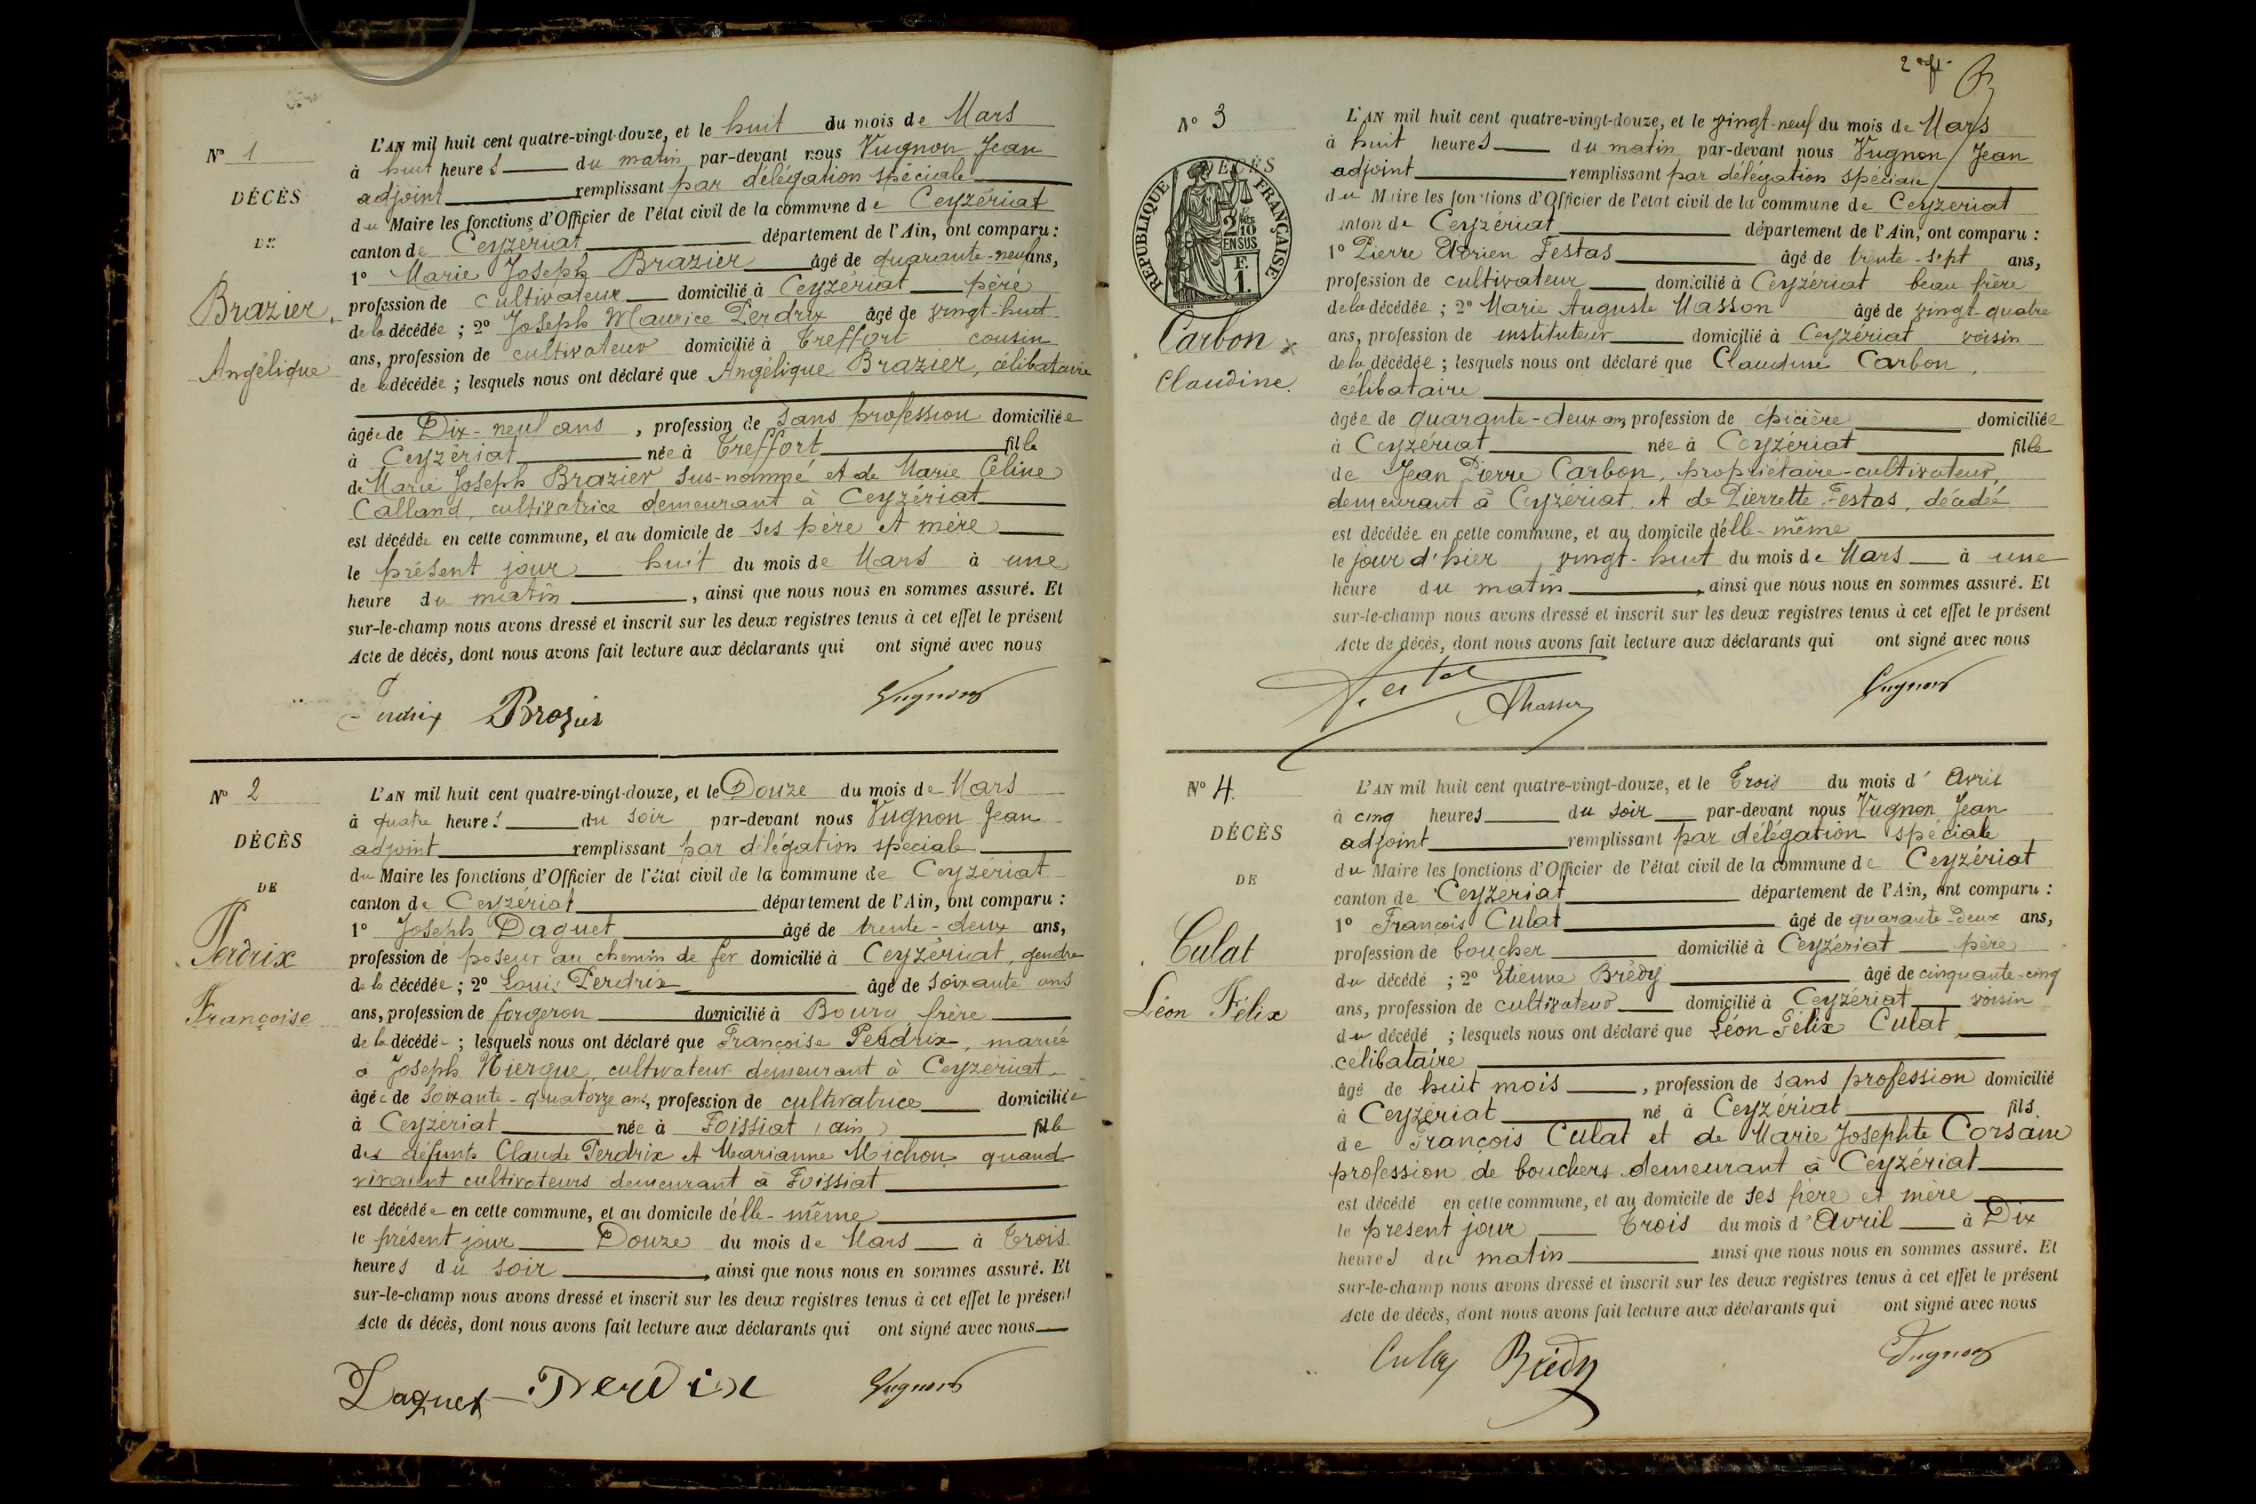 N° 1
DÉCÈS
DE
Brazier
Angélique
L'AN mil huit cent quatre-vingt-douze, et le huit du mois de Mars
à huit heures du matin par-devant nous Vugnon Jean
adjoint remplissant par délégation spéciale
du Maire les fonctions d'Officier de l'état civil de la commune de Ceyzériat
canton de Ceyzériat département de l'Ain, ont comparu :
1° Marie Joseph Brazier âgé de quarante-neuf ans,
profession de cultivateur domicilié à Ceyzériat père
de la décédée ; 2° Joseph Maurice Perdrix âgé de vingt-huit
ans, profession de cultivateur domicilié à Treffort cousin
de la décédée ; lesquels nous ont déclaré que Angélique Brazier, célibataire
âgée de Dix-neuf ans, profession de sans profession domiciliée
à Ceyzériat née à Treffort fille
de Marie Joseph Brazier sus-nommé et de Marie Céline
Calland, cultivatrice demeurant à Ceyzériat
est décédée en cette commune, et au domicile de ses père et mère
le présent jour huit du mois de Mars à une
heure du matin, ainsi que nous nous en sommes assuré. Et
sur-le-champ nous avons dressé et inscrit sur les deux registres tenus à cet effet le présent
Acte de décès, dont nous avons fait lecture aux déclarants qui ont signé avec nous
Perdrix Brazier Vugnon
N° 2
DÉCÈS
DE
Perdrix
Françoise
L'AN mil huit cent quatre-vingt-douze, et le Douze du mois de Mars
à quatre heures du soir par-devant nous Vugnon Jean
adjoint remplissant par délégation spéciale
du Maire les fonctions d'Officier de l'état civil de la commune de Ceyzériat
canton de Ceyzériat département de l'Ain, ont comparu :
1° Joseph Daguet âgé de trente-deux ans,
profession de poseur au chemin de fer domicilié à Ceyzériat, gendre
de la décédée ; 2° Louis Perdrix âgé de soixante ans
ans, profession de forgeron domicilié à Bourg frère
de la décédée ; lesquels nous ont déclaré que Françoise Perdrix, mariée
à Joseph Niergue, cultivateur demeurant à Ceyzériat
âgée de soixante-quatorze ans, profession de cultivatrice domiciliée
à Ceyzériat née à Foissiat (ain) fille
des défunts Claude Perdrix et Marianne Michon quand
vivaient cultivateurs demeurant à Foissiat
est décédée en cette commune, et au domicile d'elle-même
le présent jour Douze du mois de Mars à Trois
heures du soir, ainsi que nous nous en sommes assuré. Et
sur-le-champ nous avons dressé et inscrit sur les deux registres tenus à cet effet le présent
Acte de décès, dont nous avons fait lecture aux déclarants qui ont signé avec nous
Daguet Perdrix Vugnon
2
N° 3
DÉCÈS
RÉPUBLIQUE FRANÇAISE
2/10 EN SUS
F. 1.
Carbon
Claudine.
L'AN mil huit cent quatre-vingt-douze, et le vingt-neuf du mois de Mars
à huit heures du matin par-devant nous Vugnon Jean
adjoint remplissant par délégation spéciale
du Maire les fonctions d'Officier de l'état civil de la commune de Ceyzériat
canton de Ceyzériat département de l'Ain, ont comparu :
1° Pierre Adrien Festas âgé de trente-sept ans,
profession de cultivateur domicilié à Ceyzériat beau frère
de la décédée ; 2° Marie Auguste Masson âgé de vingt-quatre
ans, profession de instituteur domicilié à Ceyzériat voisin
de la décédée ; lesquels nous ont déclaré que Claudine Carbon,
célibataire
âgée de quarante-deux ans profession de épicière domiciliée
à Ceyzériat née à Ceyzériat fille
de Jean Pierre Carbon, propriétaire-cultivateur,
demeurant à Ceyzériat et de Pierrette Festas, décédé
est décédée en cette commune, et au domicile d'elle-même
le jour d'hier, vingt-huit du mois de Mars à une
heure du matin, ainsi que nous nous en sommes assuré. Et
sur-le-champ nous avons dressé et inscrit sur les deux registres tenus à cet effet le présent
Acte de décès, dont nous avons fait lecture aux déclarants qui ont signé avec nous
Festas AMasson Vugnon
N° 4.
DÉCÈS
DE
Culat
Léon Félix
L'AN mil huit cent quatre-vingt-douze, et le Trois du mois d'Avril
à cinq heures du soir par-devant nous Vugnon Jean
adjoint remplissant par délégation spéciale
du Maire les fonctions d'Officier de l'état civil de la commune de Ceyzériat
canton de Ceyzériat département de l'Ain, ont comparu :
1° François Culat âgé de quarante-Deux ans,
profession de boucher domicilié à Ceyzériat père
du décédé ; 2° Etienne Brédy âgé de cinquante-cinq
ans, profession de cultivateur domicilié à Ceyzériat voisin
du décédé ; lesquels nous ont déclaré que Léon Félix Culat
célibataire
âgé de huit mois, profession de sans profession domicilié
à Ceyzériat né à Ceyzériat fils
de François Culat et de Marie Josephte Corsain
profession de bouchers demeurant à Ceyzériat
est décédé en cette commune, et au domicile de ses père et mère
le présent jour Trois du mois d'Avril à Dix
heures du matin ainsi que nous nous en sommes assuré. Et
sur-le-champ nous avons dressé et inscrit sur les deux registres tenus à cet effet le présent
Acte de décès, dont nous avons fait lecture aux déclarants qui ont signé avec nous
Culat Brédy Vugnon